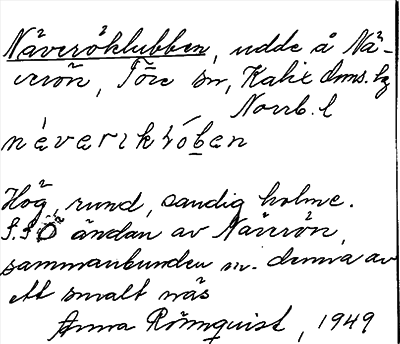 Näveröklubben, udde å Nä-
verön, Töre sn, Kalix dms. hg
Norrb. l
néveriklóben
Hög, rund, sandig holme.
S.S.Ö ändan av Näverön,
sammanbunden m. denna av
ett smalt näs
Anna Rönnquist, 1949